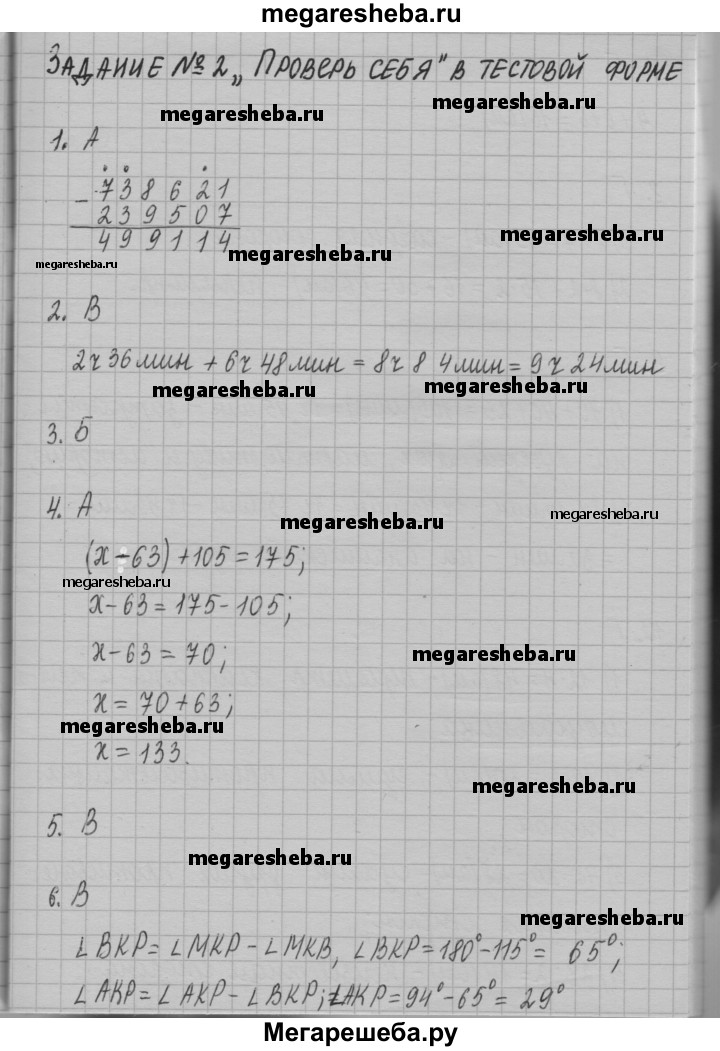 megaresheba.ru
ЗАДАНИЕ № 2 „ ПРОВЕРЬ СЕБЯ" В ТЕСТОВОЙ ФОРМЕ
megaresheba.ru
megaresheba.ru
1. А
- 738621
239507
499114
megaresheba.ru
megaresheba.ru
megaresheba.ru
2. В
2ч 36мин + 6ч 48мин = 8ч 84мин = 9ч 24мин
megaresheba.ru
megaresheba.ru
3. Б
4. А
megaresheba.ru
megaresheba.ru
(x-63)+105=175;
megaresheba.ru
x-63=175-105;
x-63=70;
megaresheba.ru
x=70+63;
megaresheba.ru
x=133.
megaresheba.ru
5. В
megaresheba.ru
6. В
megaresheba.ru
∠BKP=∠MKP-∠MKB, ∠BKP=180°-115°= 65°;
∠AKP=∠AKP-∠BKP; ∠AKP=94°-65°= 29°
Мегарешеба.ру